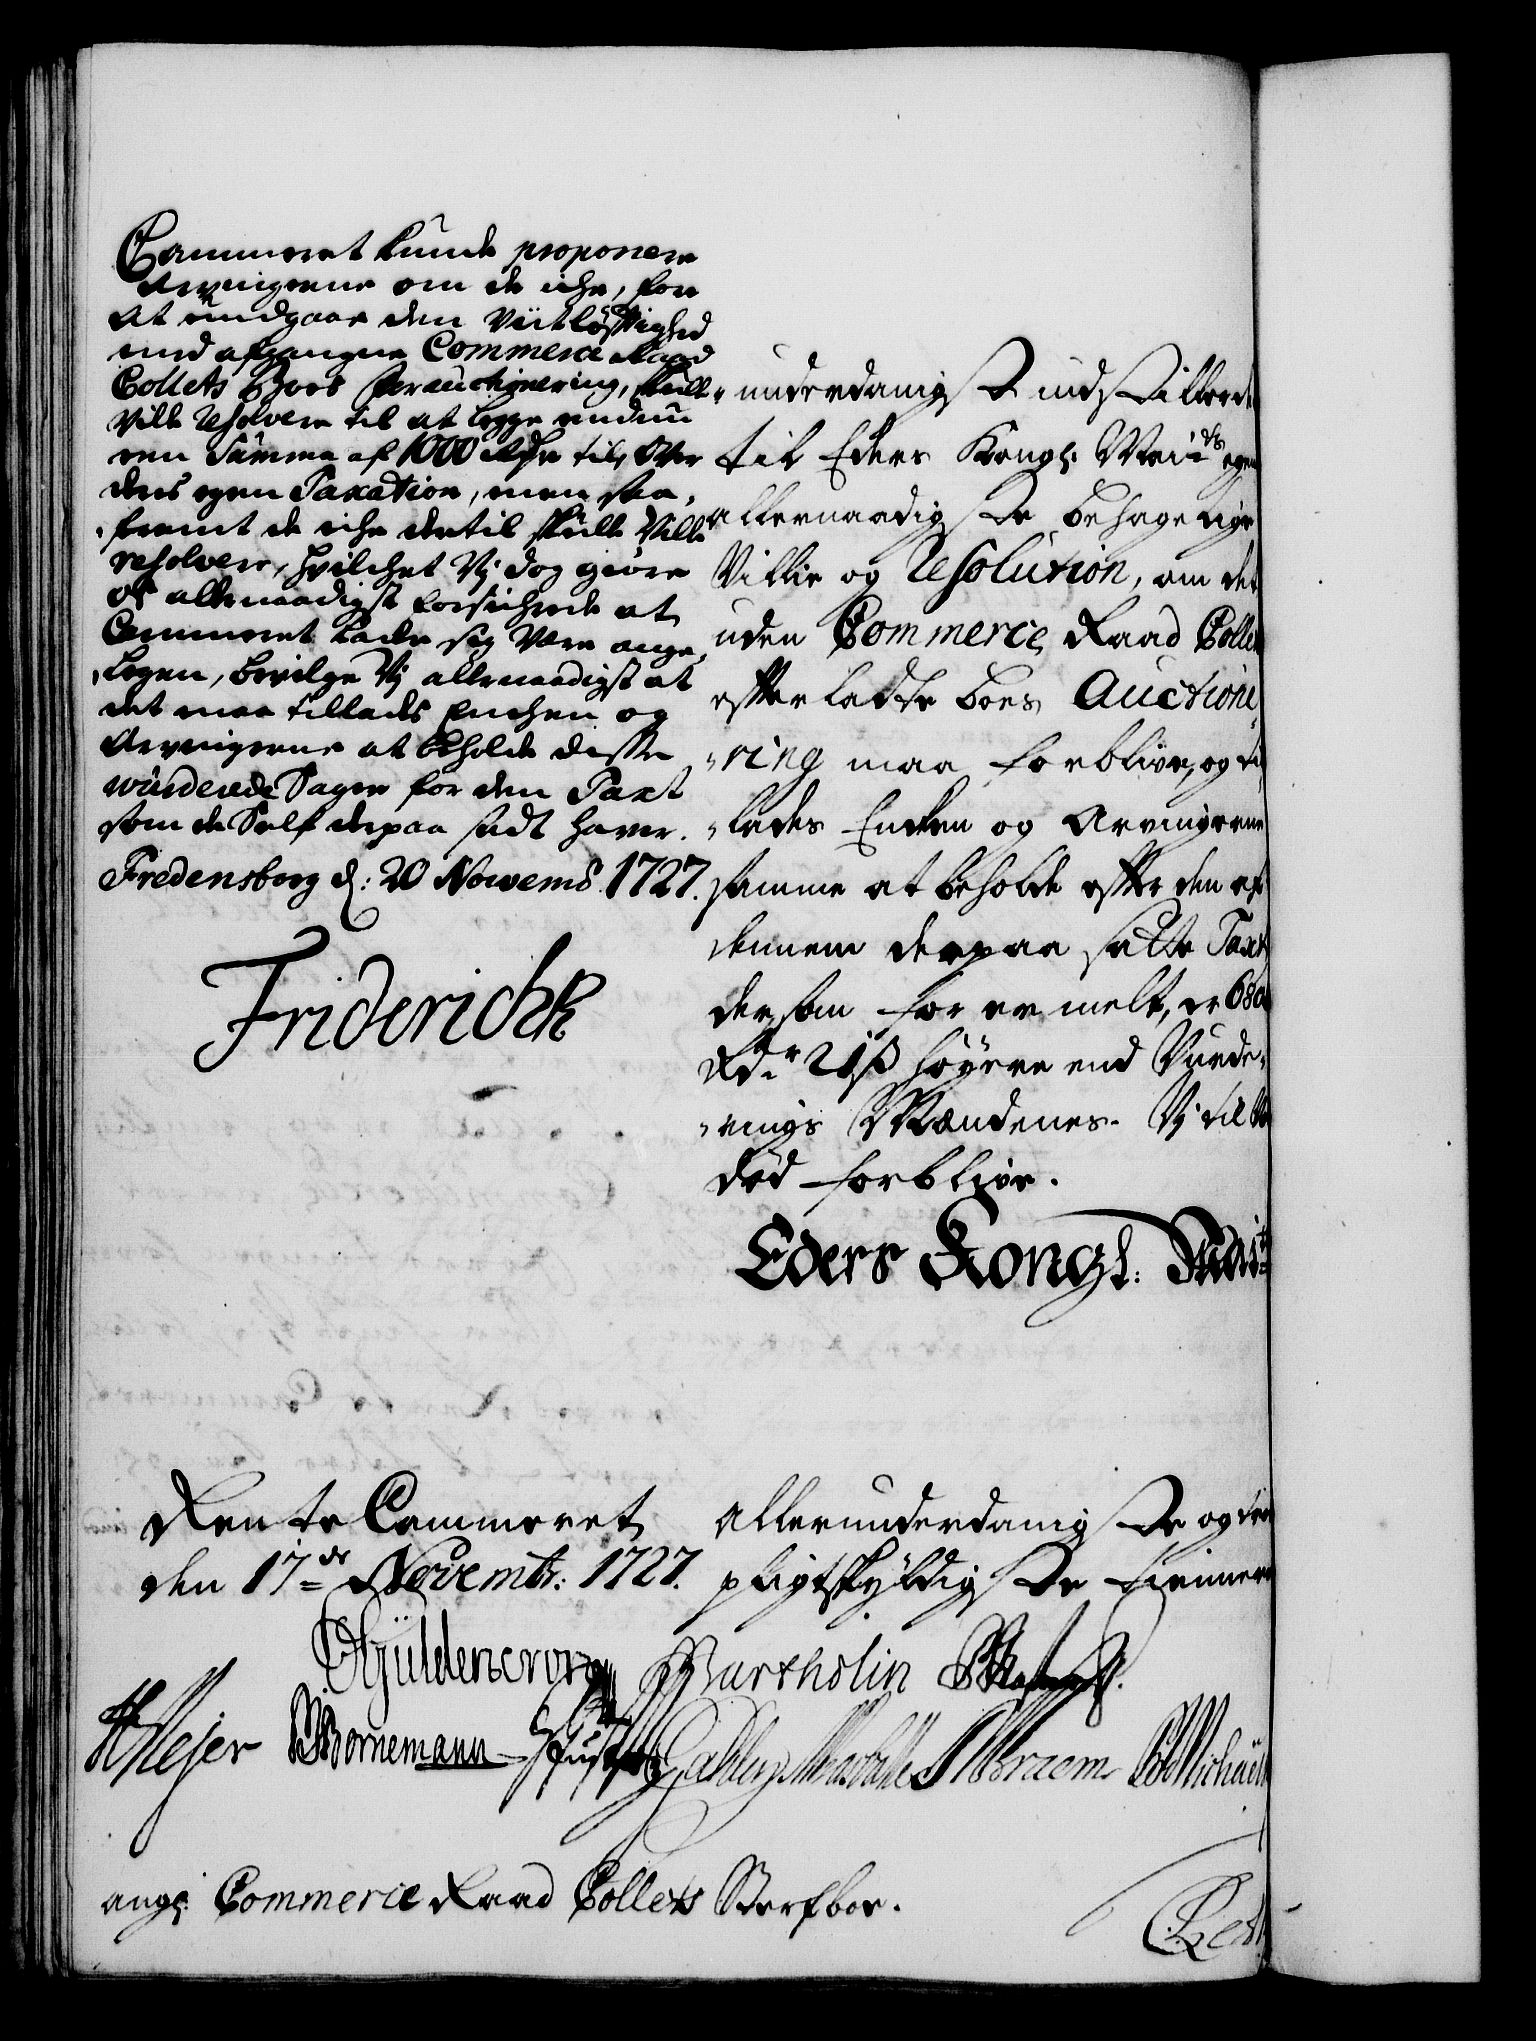 Cammeret kunde proponere
Arvingerne om de iche, for
at undgaae den Viitløftighed
med afgangne Commerce Raad
Collets Boes Forauctionering, skulle
ville resolvere til at legge endnu
een Summa af 1000 Rdr til, over
deris egen Taxation, men saa,
fremt de iche dertil skulle ville
resolvere, hvilchet Vj dog giøre
os allernaadigst forsichrede at
Cammeret lader sig være ange,
,legen, bevilge Vj allernaadigst at
det maa tillades Enchen og
Arvingerne at beholde disse
wurderede Sager for den Taxt
som de Self derpaa sadt haver.
Fredensborg d: 20 Novemb 1727.
Friderich R
underdanigst indstillende
til Eders Kongl: Maits egen
allernaadigste behagelige
Villie og Resolution, om det
uden Commerce Raad Collets
efterladte boes Auctione
"ring maa forblive, og til
"lades Encken og Arvingerne
samme at beholde efter den af
dennem derpaa satte Taxt
der som for er melt, er 680
Rdr 21 ß høyere end Vurde,
,rings Mændenes. Vj til
død forblive.
Eders Kongl: Mait
Rente Cammeret
den 17de Novembr: 1727.
Allerunderdanigste og
pligtskyldigste tienere
Güldencrone Bartholin
Meyer Bornemann
ang: Commerce Raad Collets Sterfboe.